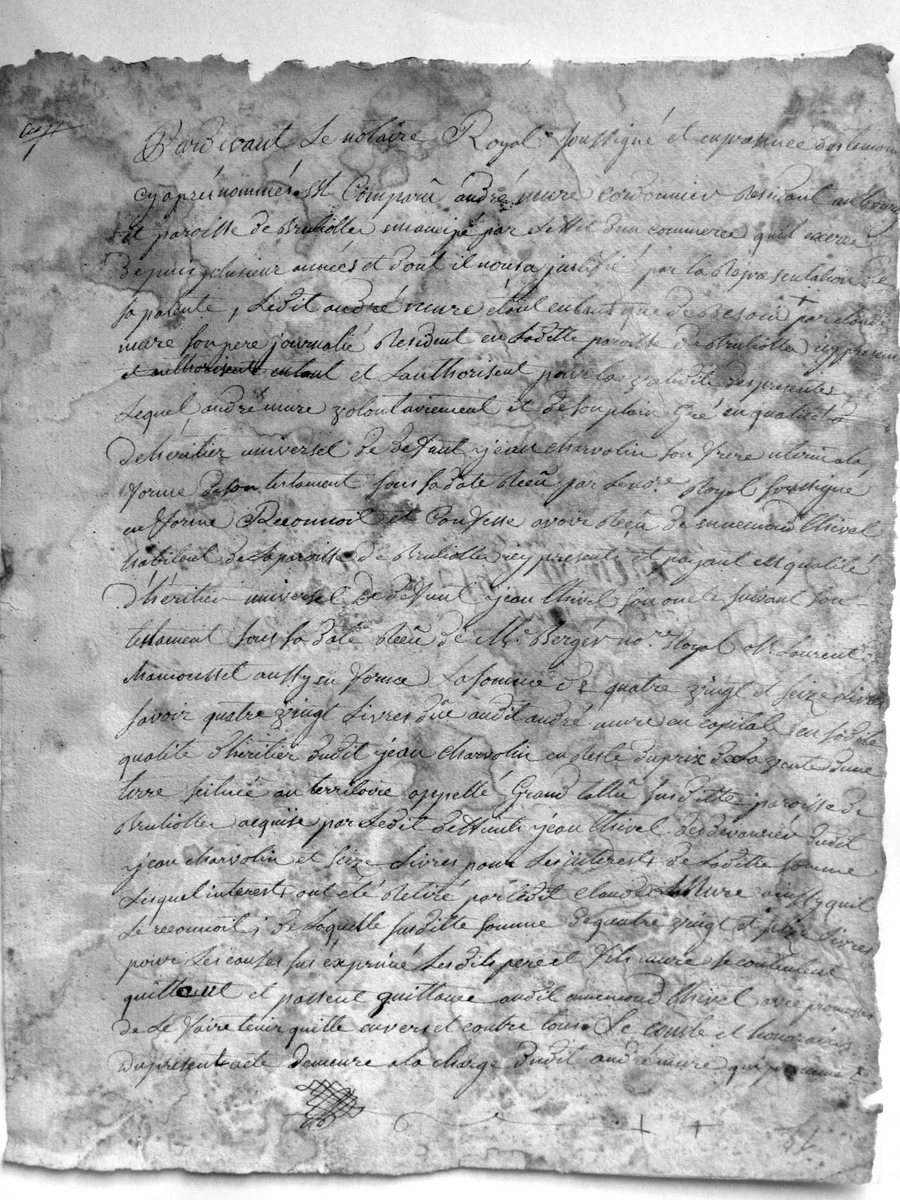 Pardevant Le notaire Royal Soussigné et en presence des temoins
cy après nommés Est Comparû andré mure cordonnier Resident au bourg
et paroisse de Brullioles emancipé par Leffet dun commerce quil exerce
Depuis plusieur années et dont il nous a justifié par la Representation de
sa patente, Ledit andré mure etant en tant que de Besoin +
mure son pere journalié Resident en Laditte paroisse de Brullioles icy present
et authorisent et Lauthorisent pour la validité des presentes
Lequel andré mure volontairement et de son plain Gré en qualité
Deheritier universel de deffunt jean charvolin son frere uterin a la
forme de son testament sous sa date Reçû par Le no.re Royal soussigné
en fforme Reconnoit et Confesse avoir Reçû de ennemond Chivel
habitant de La paroisse de Brullioles icy present et payant en qualité
D'héritier universel De deffunt jean Chivel son oncle suivant son
testament sous sa date Reçû de Me Bergér no.re Royal a St Laurent
Chamousset aussy en forme La somme de quatre vingt et seize Livres
savoir quatre vingt Livres dûe audit andré mure en capital en sadite
qualité d'héritier dudit jean charvolin en Reste du prix de La vente dune
terre scituée au territoire appellé Grand susditte paroisse de
Brullioles acquise par Ledit deffunt jean Chivel des devancier dudit
jean charvolin et seize Livres pour Les interest de Laditte somme
Lesquel interest ont eté Retiré par Ledit claude Mure ainssy quil
Le reconnoit, de Laquelle susditte somme de quatre vingt et seize Livres
pour Les causes sus exprimé Lesdits pere et fils mure se contentent
quittent et passent quittance audit ennemond Chivel avec promesse
de Le faire tenir quitte envers et contre tous. Le conole et honoraires
du present acte demeure a la charge dudit andré mure qui promet